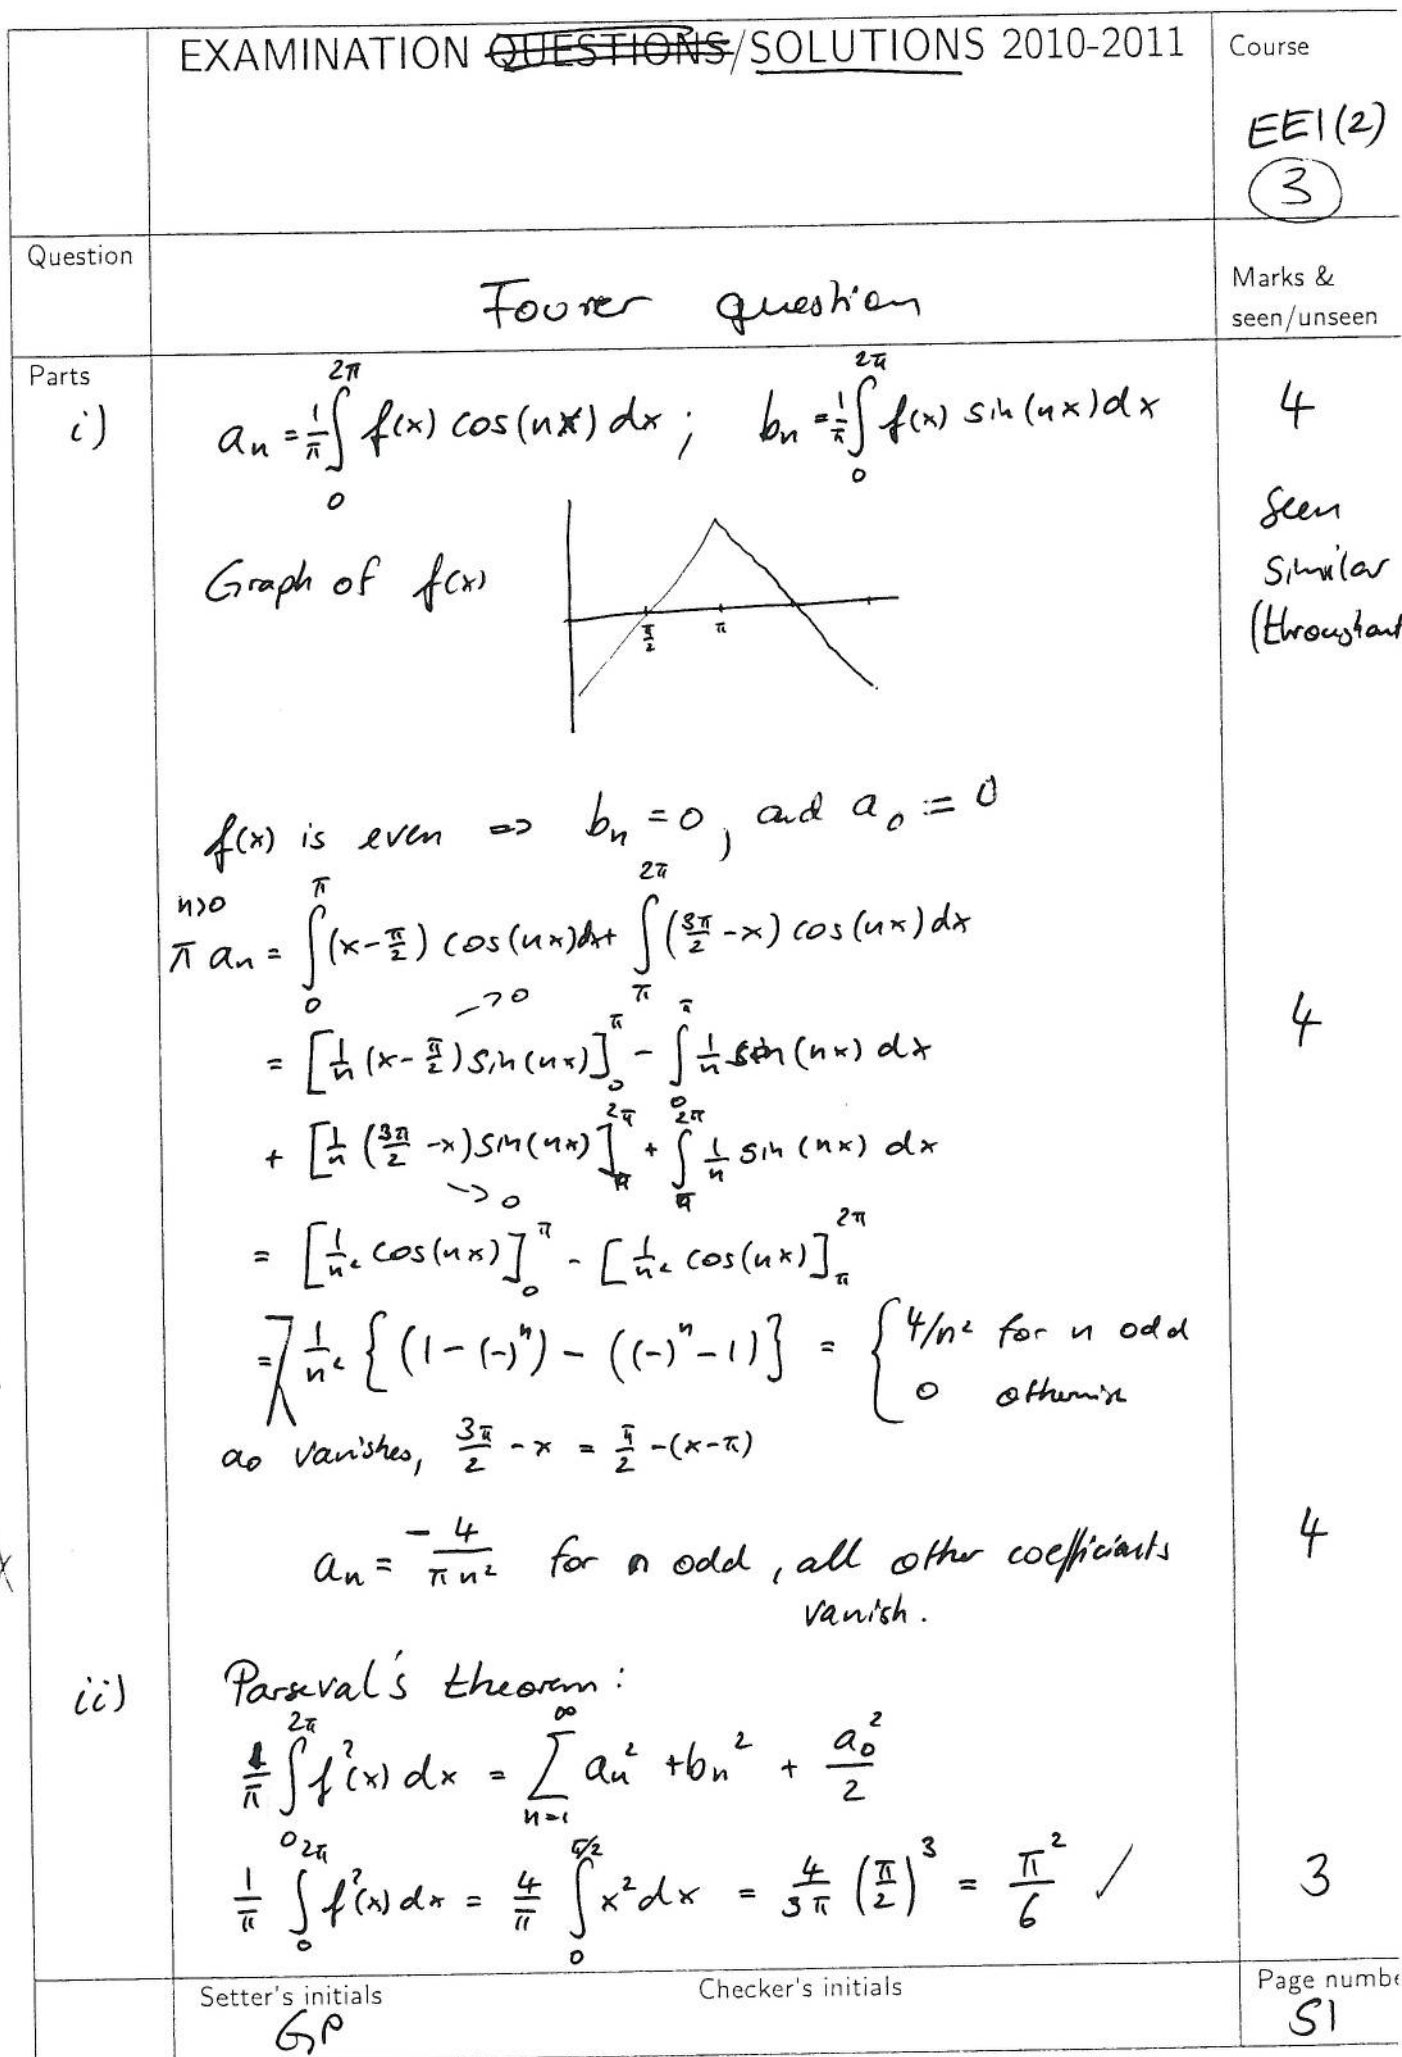 EXAMINATION QUESTIONS/SOLUTIONS 2010-2011
Course
EE1(2)
3
Question
Fourier question
Marks &
seen/unseen
Parts
i) a_n = 1/π ∫_0^{2π} f(x) cos(nx) dx ; b_n = 1/π ∫_0^{2π} f(x) sin(nx) dx
4
Seen
Similar
(throughout
Graph of f(x)
π/2 π
f(x) is even => b_n = 0, and a_0 := 0
n>0
π a_n = ∫_0^π (x - π/2) cos(nx) dx + ∫_π^{2π} (3π/2 - x) cos(nx) dx
->0
= [1/n (x - π/2) sin(nx)]_0^π - ∫_0^π 1/n sin(nx) dx
4
+ [1/n (3π/2 - x) sin(nx)]_π^{2π} + ∫_π^{2π} 1/n sin(nx) dx
->0
= [1/n² cos(nx)]_0^π - [1/n² cos(nx)]_π^{2π}
= 1/n² { (1 - (-)^n) - ((-)^n - 1) } = { 4/n² for n odd
0 otherwise
a_0 vanishes, 3π/2 - x = π/2 - (x - π)
a_n = -4/(π n²) for n odd, all other coefficients
vanish.
4
ii) Parseval's theorem:
1/π ∫_0^{2π} f²(x) dx = Σ_{n=1}^∞ a_n² + b_n² + a_0²/2
1/π ∫_0^{2π} f²(x) dx = 4/π ∫_0^{π/2} x² dx = 4/(3π) (π/2)³ = π²/6 ✓
3
Setter's initials
GP
Checker's initials
Page numbe
S1